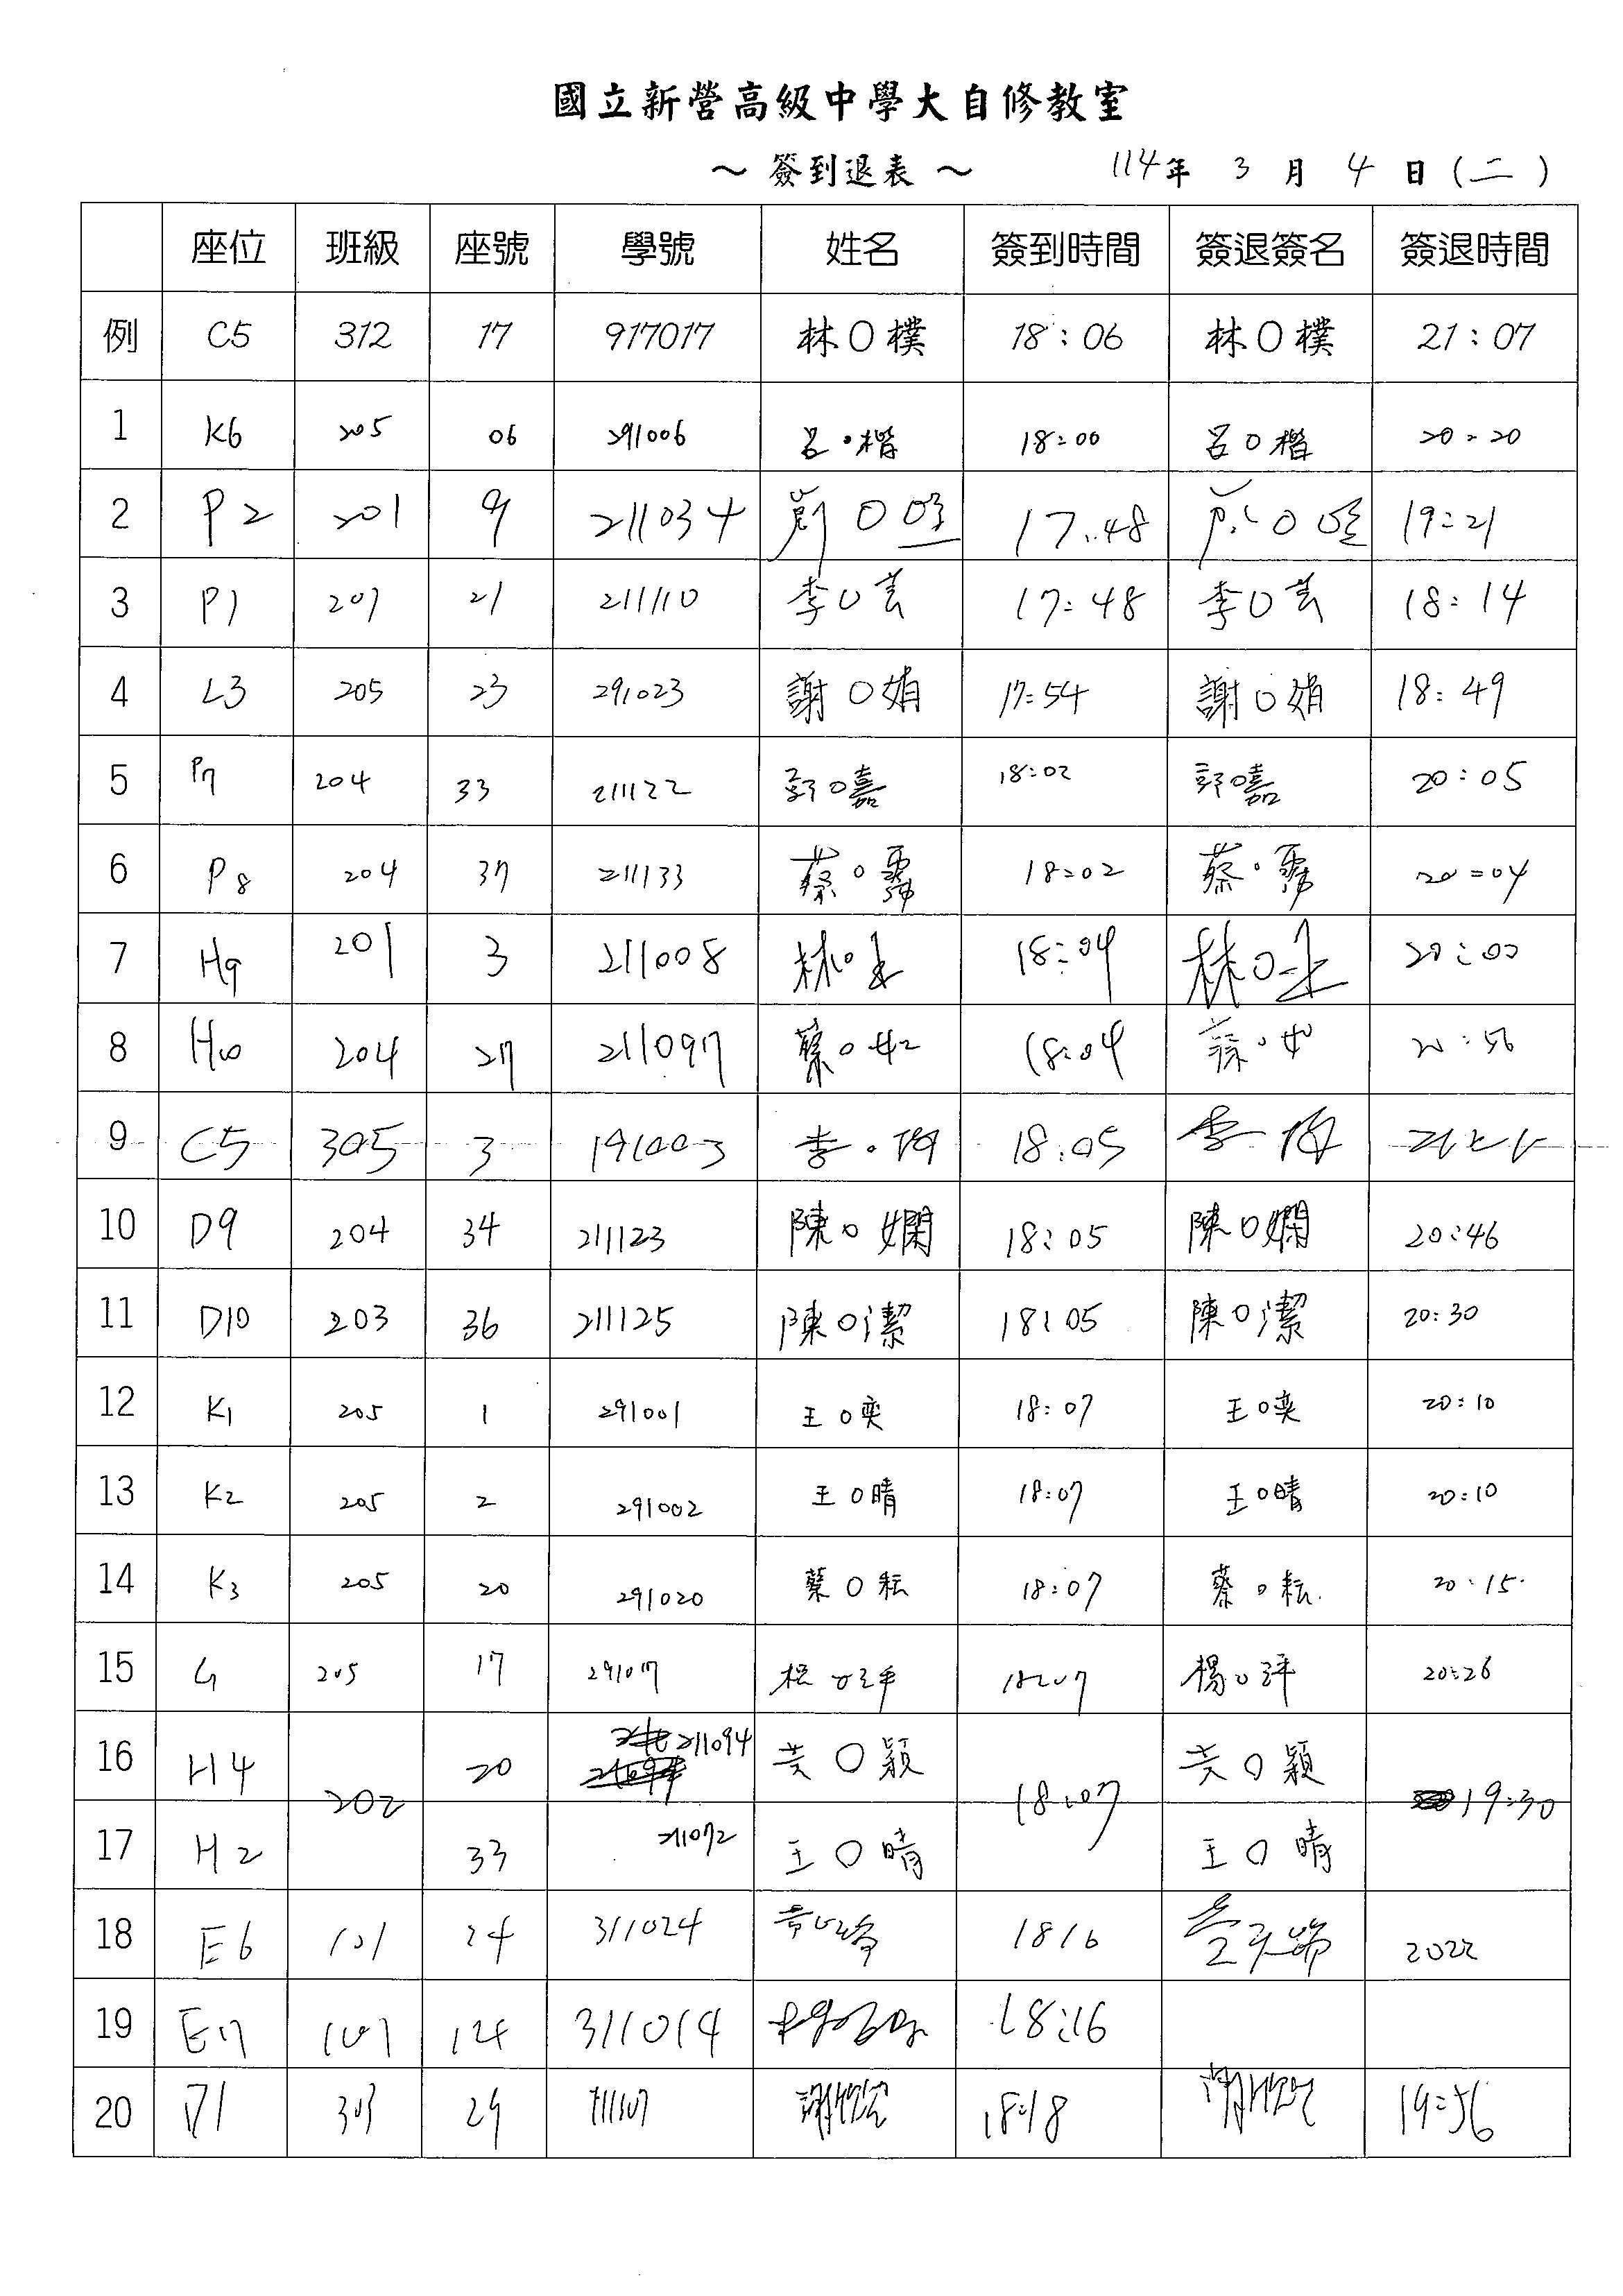 國立新營高級中學大自修教室
～ 簽到退表 ～ 114年 3 月 4 日(二)
座位 班級 座號 學號 姓名 簽到時間 簽退簽名 簽退時間
例 C5 312 17 917017 林O樸 18:06 林O樸 21:07
1 K6 205 06 291006 呂O楷 18:00 呂O楷 20:20
2 P2 201 9 211034 O 17:48 O 19:21
3 P1 207 21 211110 李O芸 17:48 李O芸 18:14
4 L3 205 23 291023 謝O娟 17:54 謝O娟 18:49
5 P7 204 33 211122 郭O嘉 18:02 郭O嘉 20:05
6 P8 204 37 211133 蔡O霈 18:02 蔡O霈 20:04
7 H9 201 3 211008 林O 18:04 林O 20:00
8 H10 204 27 211097 蔡O如 18:04 蔡O如 20:56
9 C5 305 3 191003 李O 18:05 李
10 D9 204 34 211123 陳O嫻 18:05 陳O嫻 20:46
11 D10 203 36 211125 陳O潔 18:05 陳O潔 20:30
12 K1 205 1 291001 王O奕 18:07 王O奕 20:10
13 K2 205 2 291002 王O晴 18:07 王O晴 20:10
14 K3 205 20 291020 蔡O耘 18:07 蔡O耘 20:15
15 G 205 17 291017 楊O 18:07 楊O 20:26
16 H4 202 20 211094 黃O穎 18:07 黃O穎 19:30
17 H2 33 211072 王O晴 王O晴
18 E6 101 24 311024 1816 2022
19 E7 101 14 311014 18:16
20 29 18:18 19:56